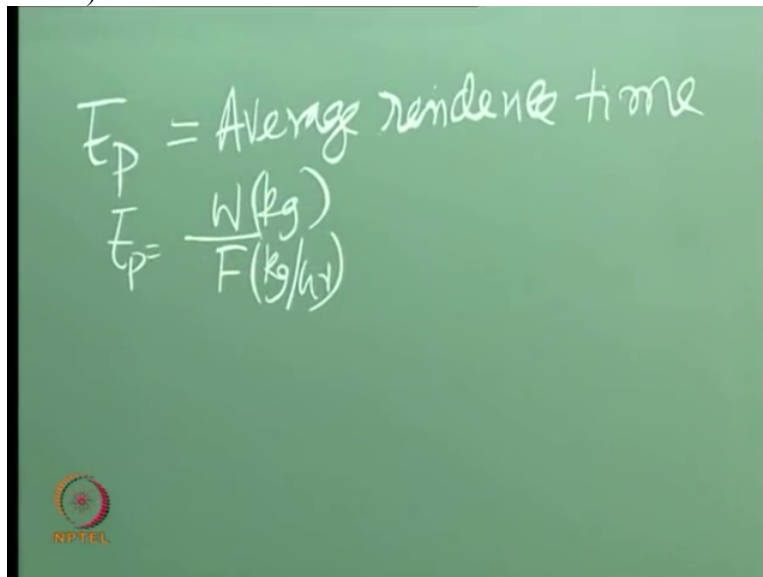 )
t̄p = Average residence time
t̄p = W(kg)
F(kg/hr)
NPTEL